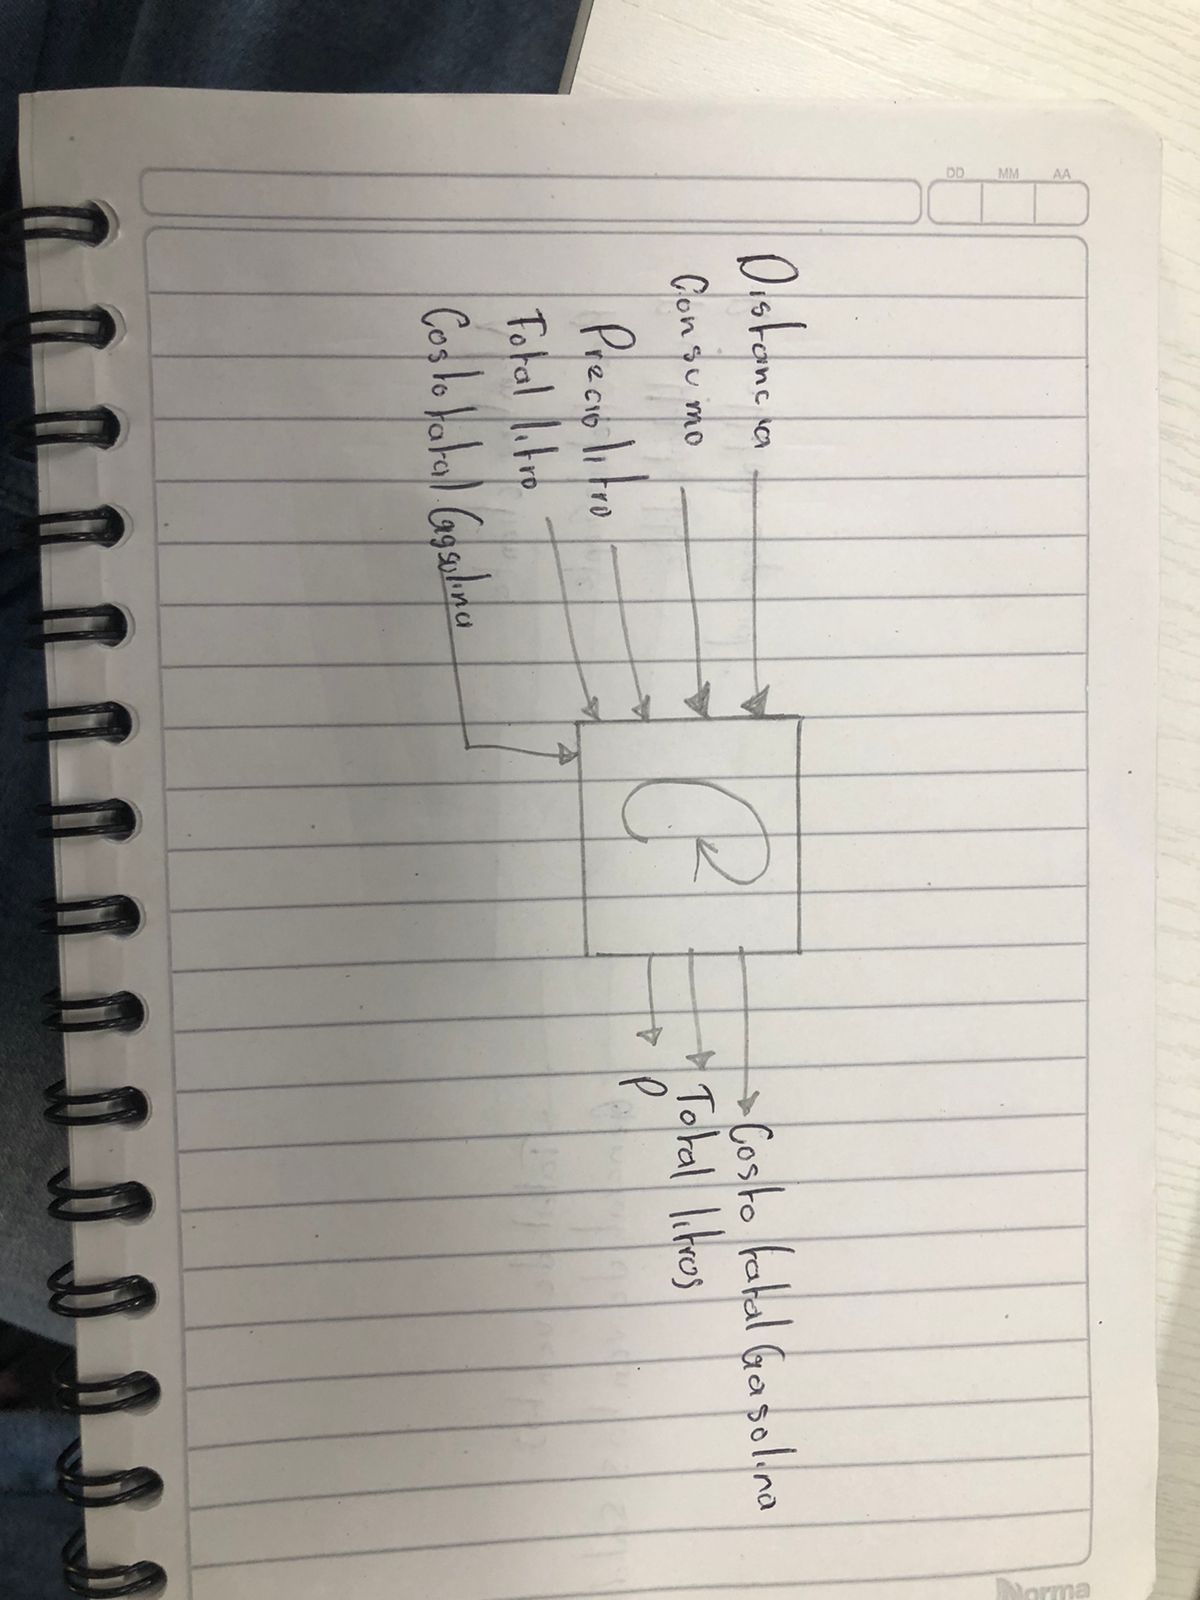 Distancia
Consumo
Precio litro
Total litro
Costo total Gasolina
Costo total Gasolina
Total litros
P
DD MM AA
Norma